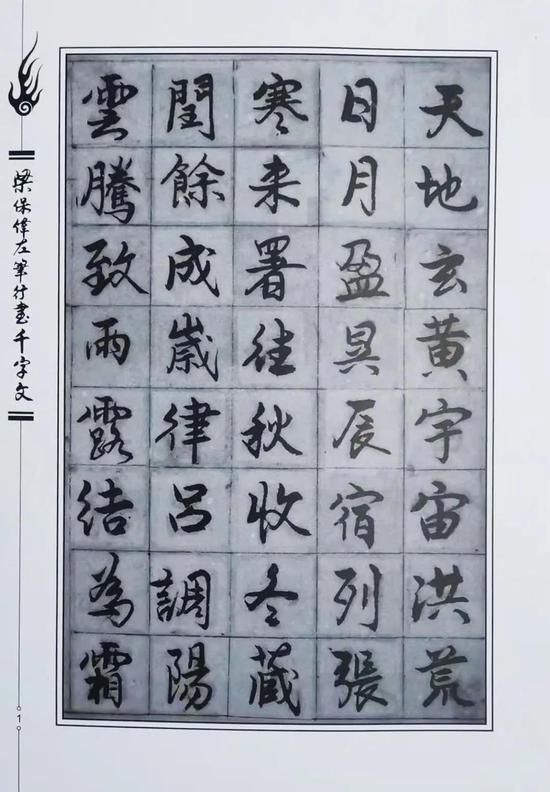 天地玄黄宇宙洪荒
日月盈昃辰宿列張
寒来署往秋收冬藏
閏餘成歲律吕調陽
雲騰致雨露結為霜
梁保偉左筆行書千字文
1